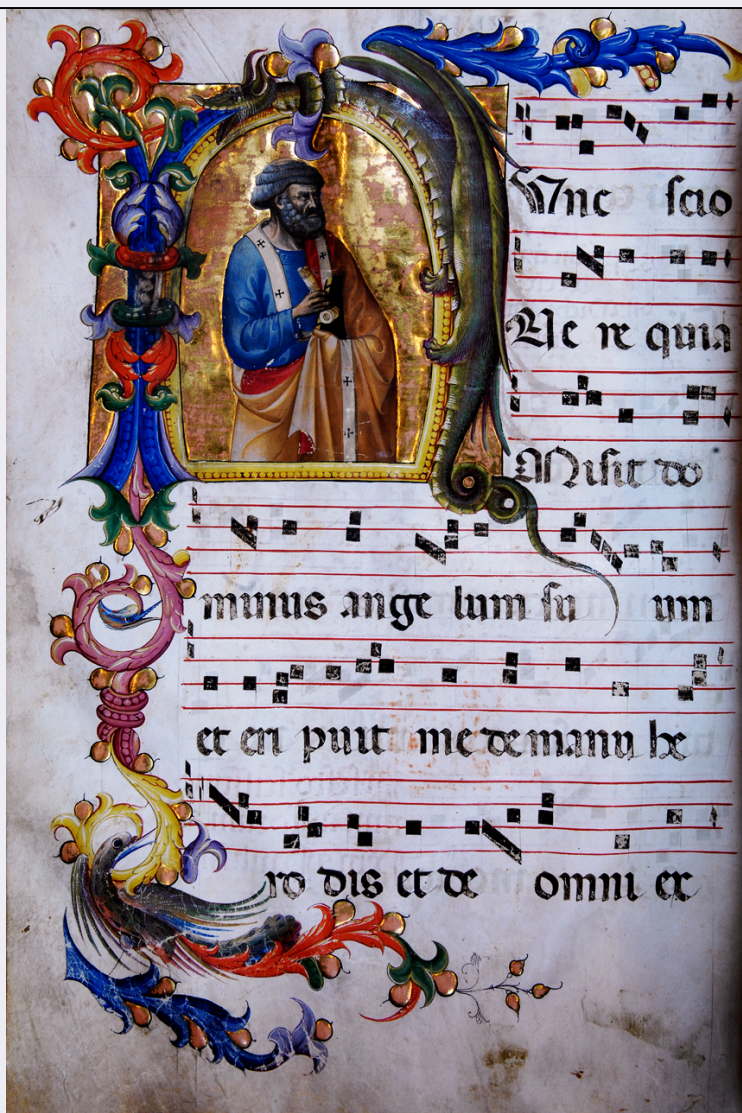 Nunc scio
Ve re quia
Misit do
minus ange lum su um
et eri puit me de manu he
ro dis et de omni ex